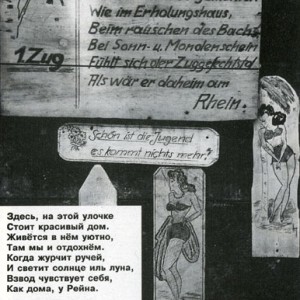 Wie im Erholungshaus,
Beim rauschen des Bachs
Bei Sonn- u. Mondenschein
Fühlt sich der Zuggefechtstd
Als wär er daheim am
Rhein.
1. Zug
Schön ist die Jugend
es kommt nichts mehr!
Здесь, на этой улочке
Стоит красивый дом.
Живётся в нём уютно,
Там мы и отдохнём.
Когда журчит ручей,
И светит солнце иль луна,
Взвод чувствует себя,
Как дома, у Рейна.